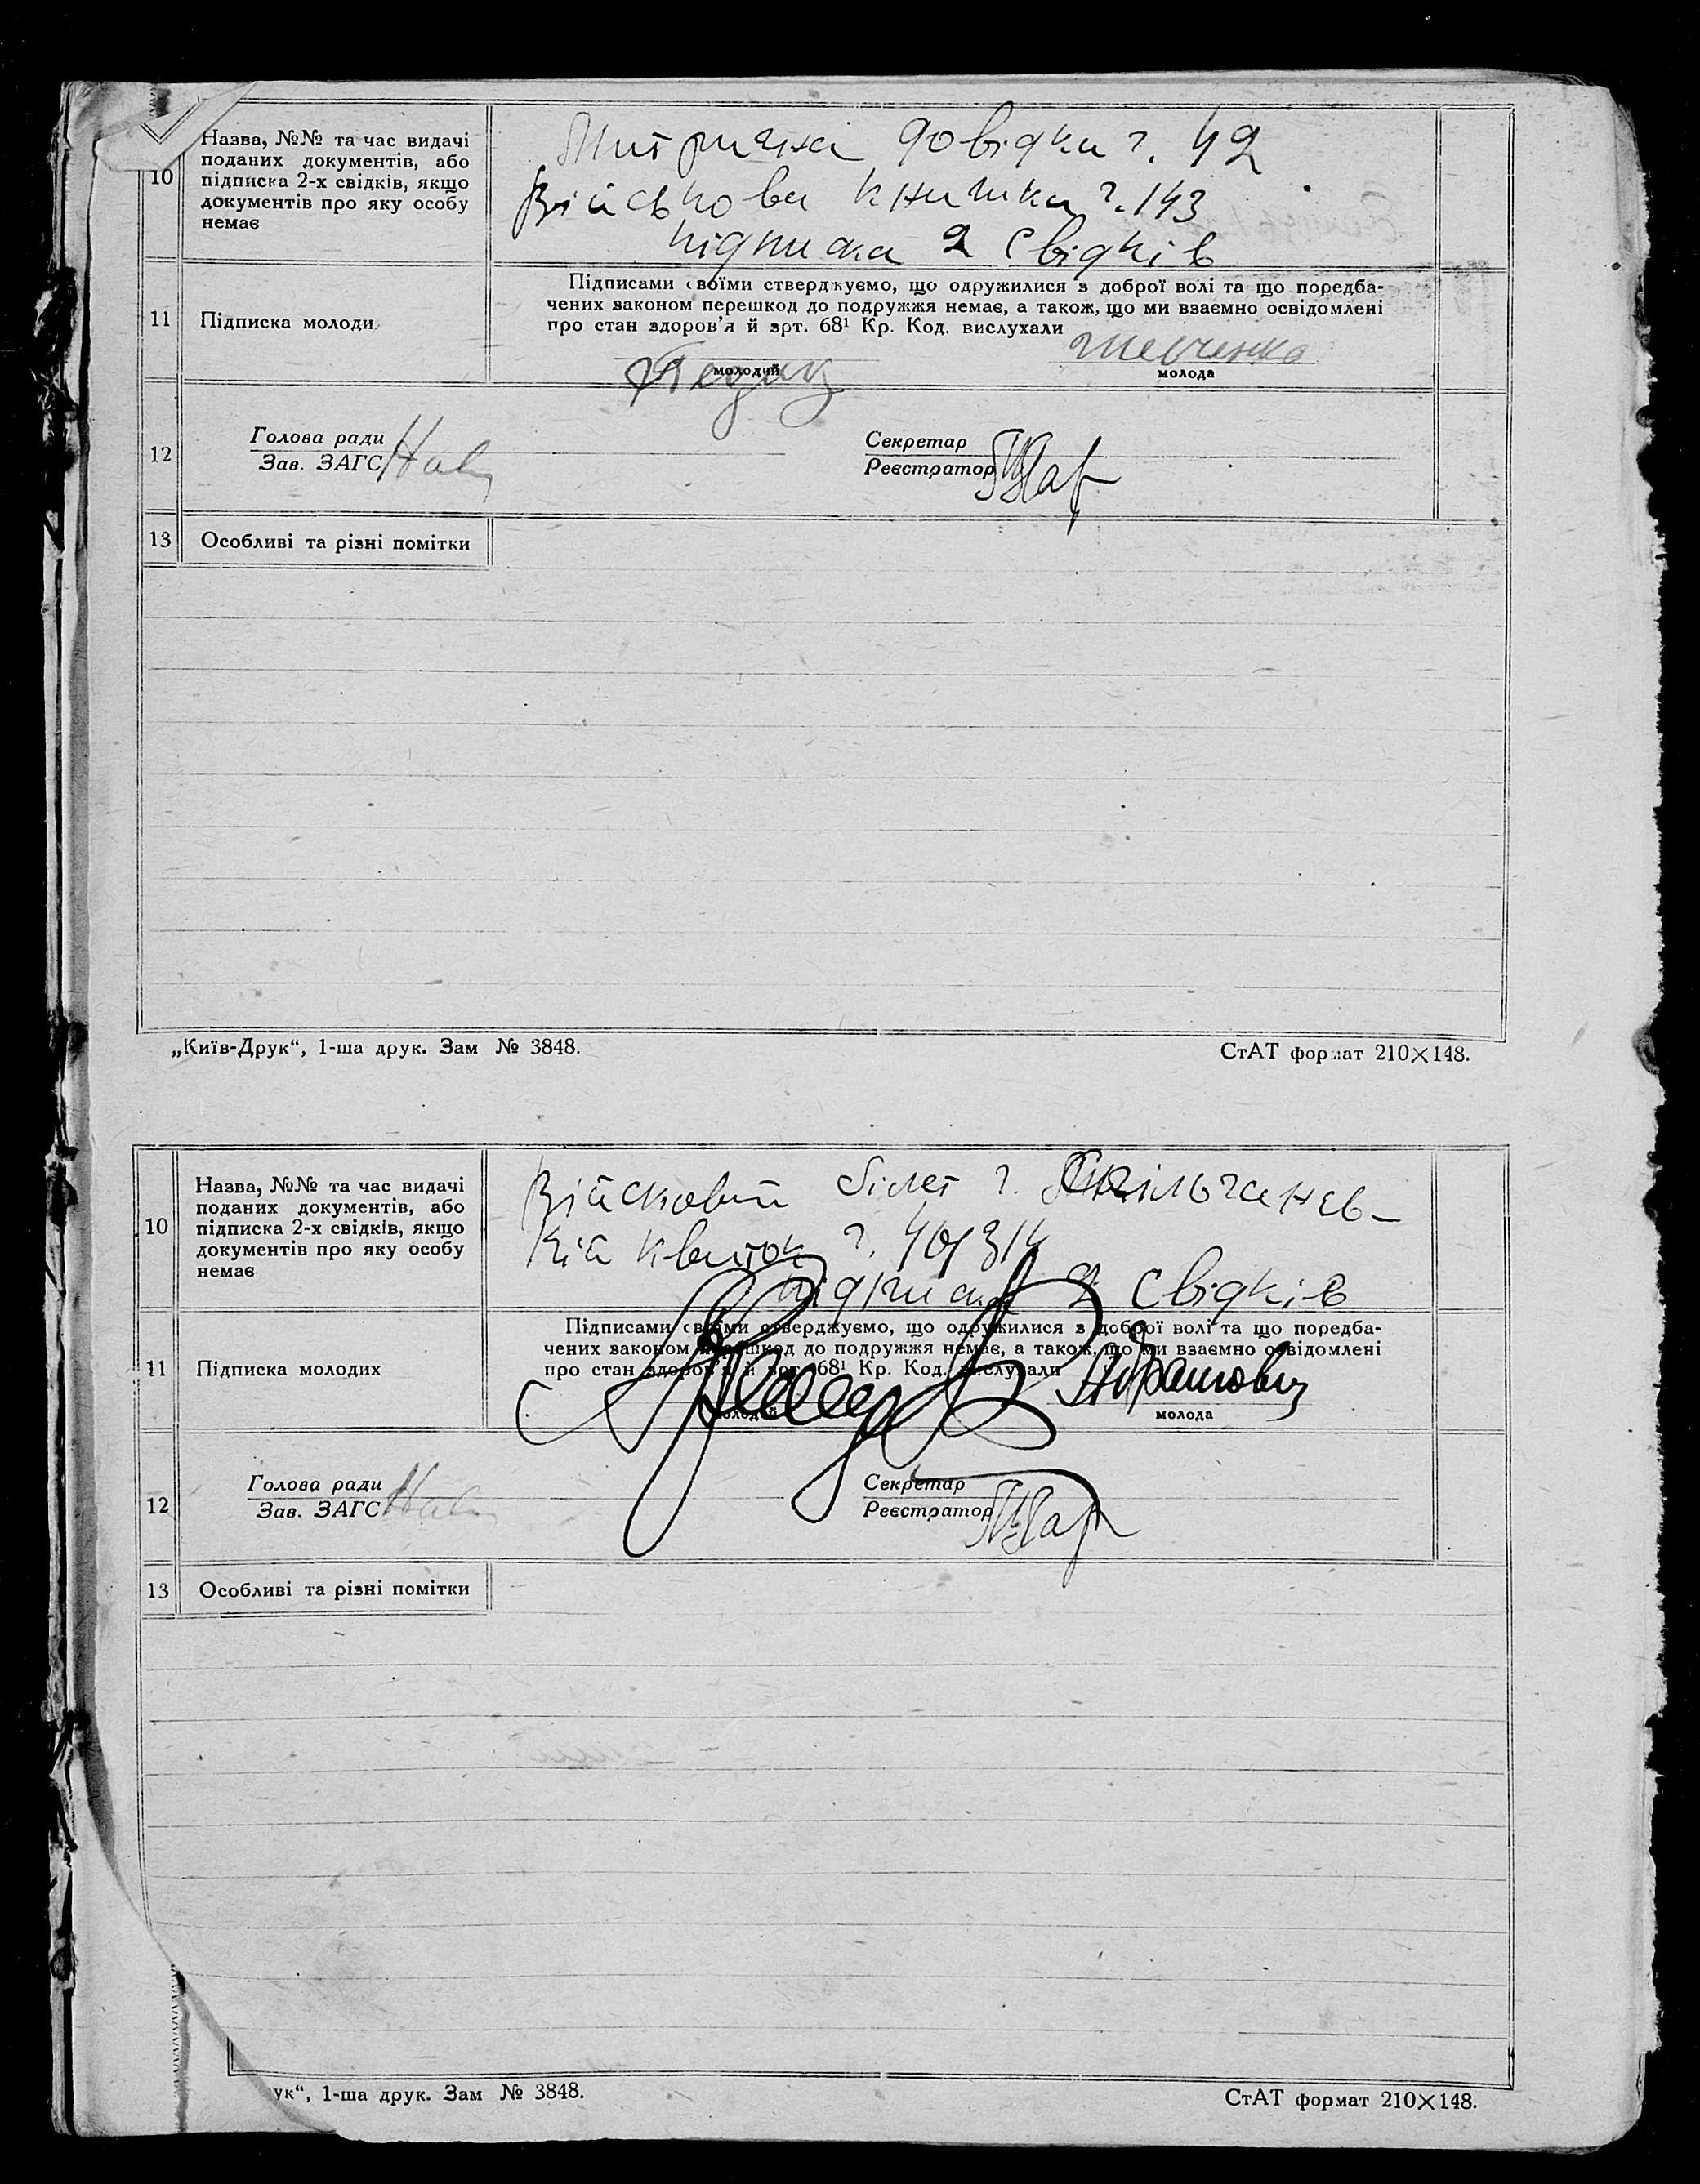 10
Назва, №№ та час видачі
поданих документів, або
підписка 2-х свідків, якщо
документів про яку особу
немає
Митрична довідка ч. 42
Військова книжка ч. 143
підписка 2 свідків
11
Підписка молоди
Підписами своїми стверджуємо, що одружилися з доброї волі та що поредба-
чених законом перешкод до подружжя немає, а також, що ми взаємно освідомлені
про стан здоров'я й зрт. 68¹ Кр. Код. вислухали
молодий
Шевченко
молода
12
Голова ради
Зав. ЗАГС
Секретар
Реєстратор
13
Особливі та різні помітки
„Київ-Друк“, 1-ша друк. Зам № 3848.
СтАТ формат 210×148.
10
Назва, №№ та час видачі
поданих документів, або
підписка 2-х свідків, якщо
документів про яку особу
немає
Війсковий білет ч.
квиток ч.
підписка 2 свідків
11
Підписка молодих
Підписами своїми стверджуємо, що одружилися з доброї волі та що поредба-
чених законом перешкод до подружжя немає, а також, що ми взаємно освідомлені
про стан здоров'я й зрт. 68¹ Кр. Код. вислухали
молодий
молода
12
Голова ради
Зав. ЗАГС
Секретар
Реєстратор
13
Особливі та різні помітки
ук“, 1-ша друк. Зам № 3848.
СтАТ формат 210×148.